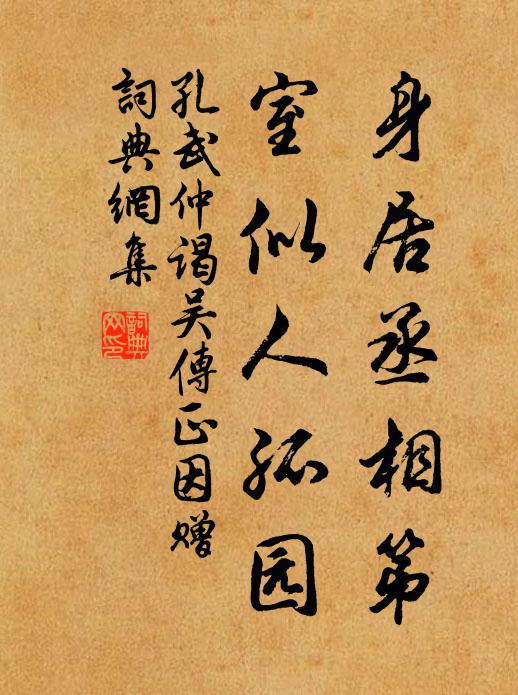 身居丞相第
室似人孤园
孔武仲謁吴傳正因赠
詞典網集
詞典网印